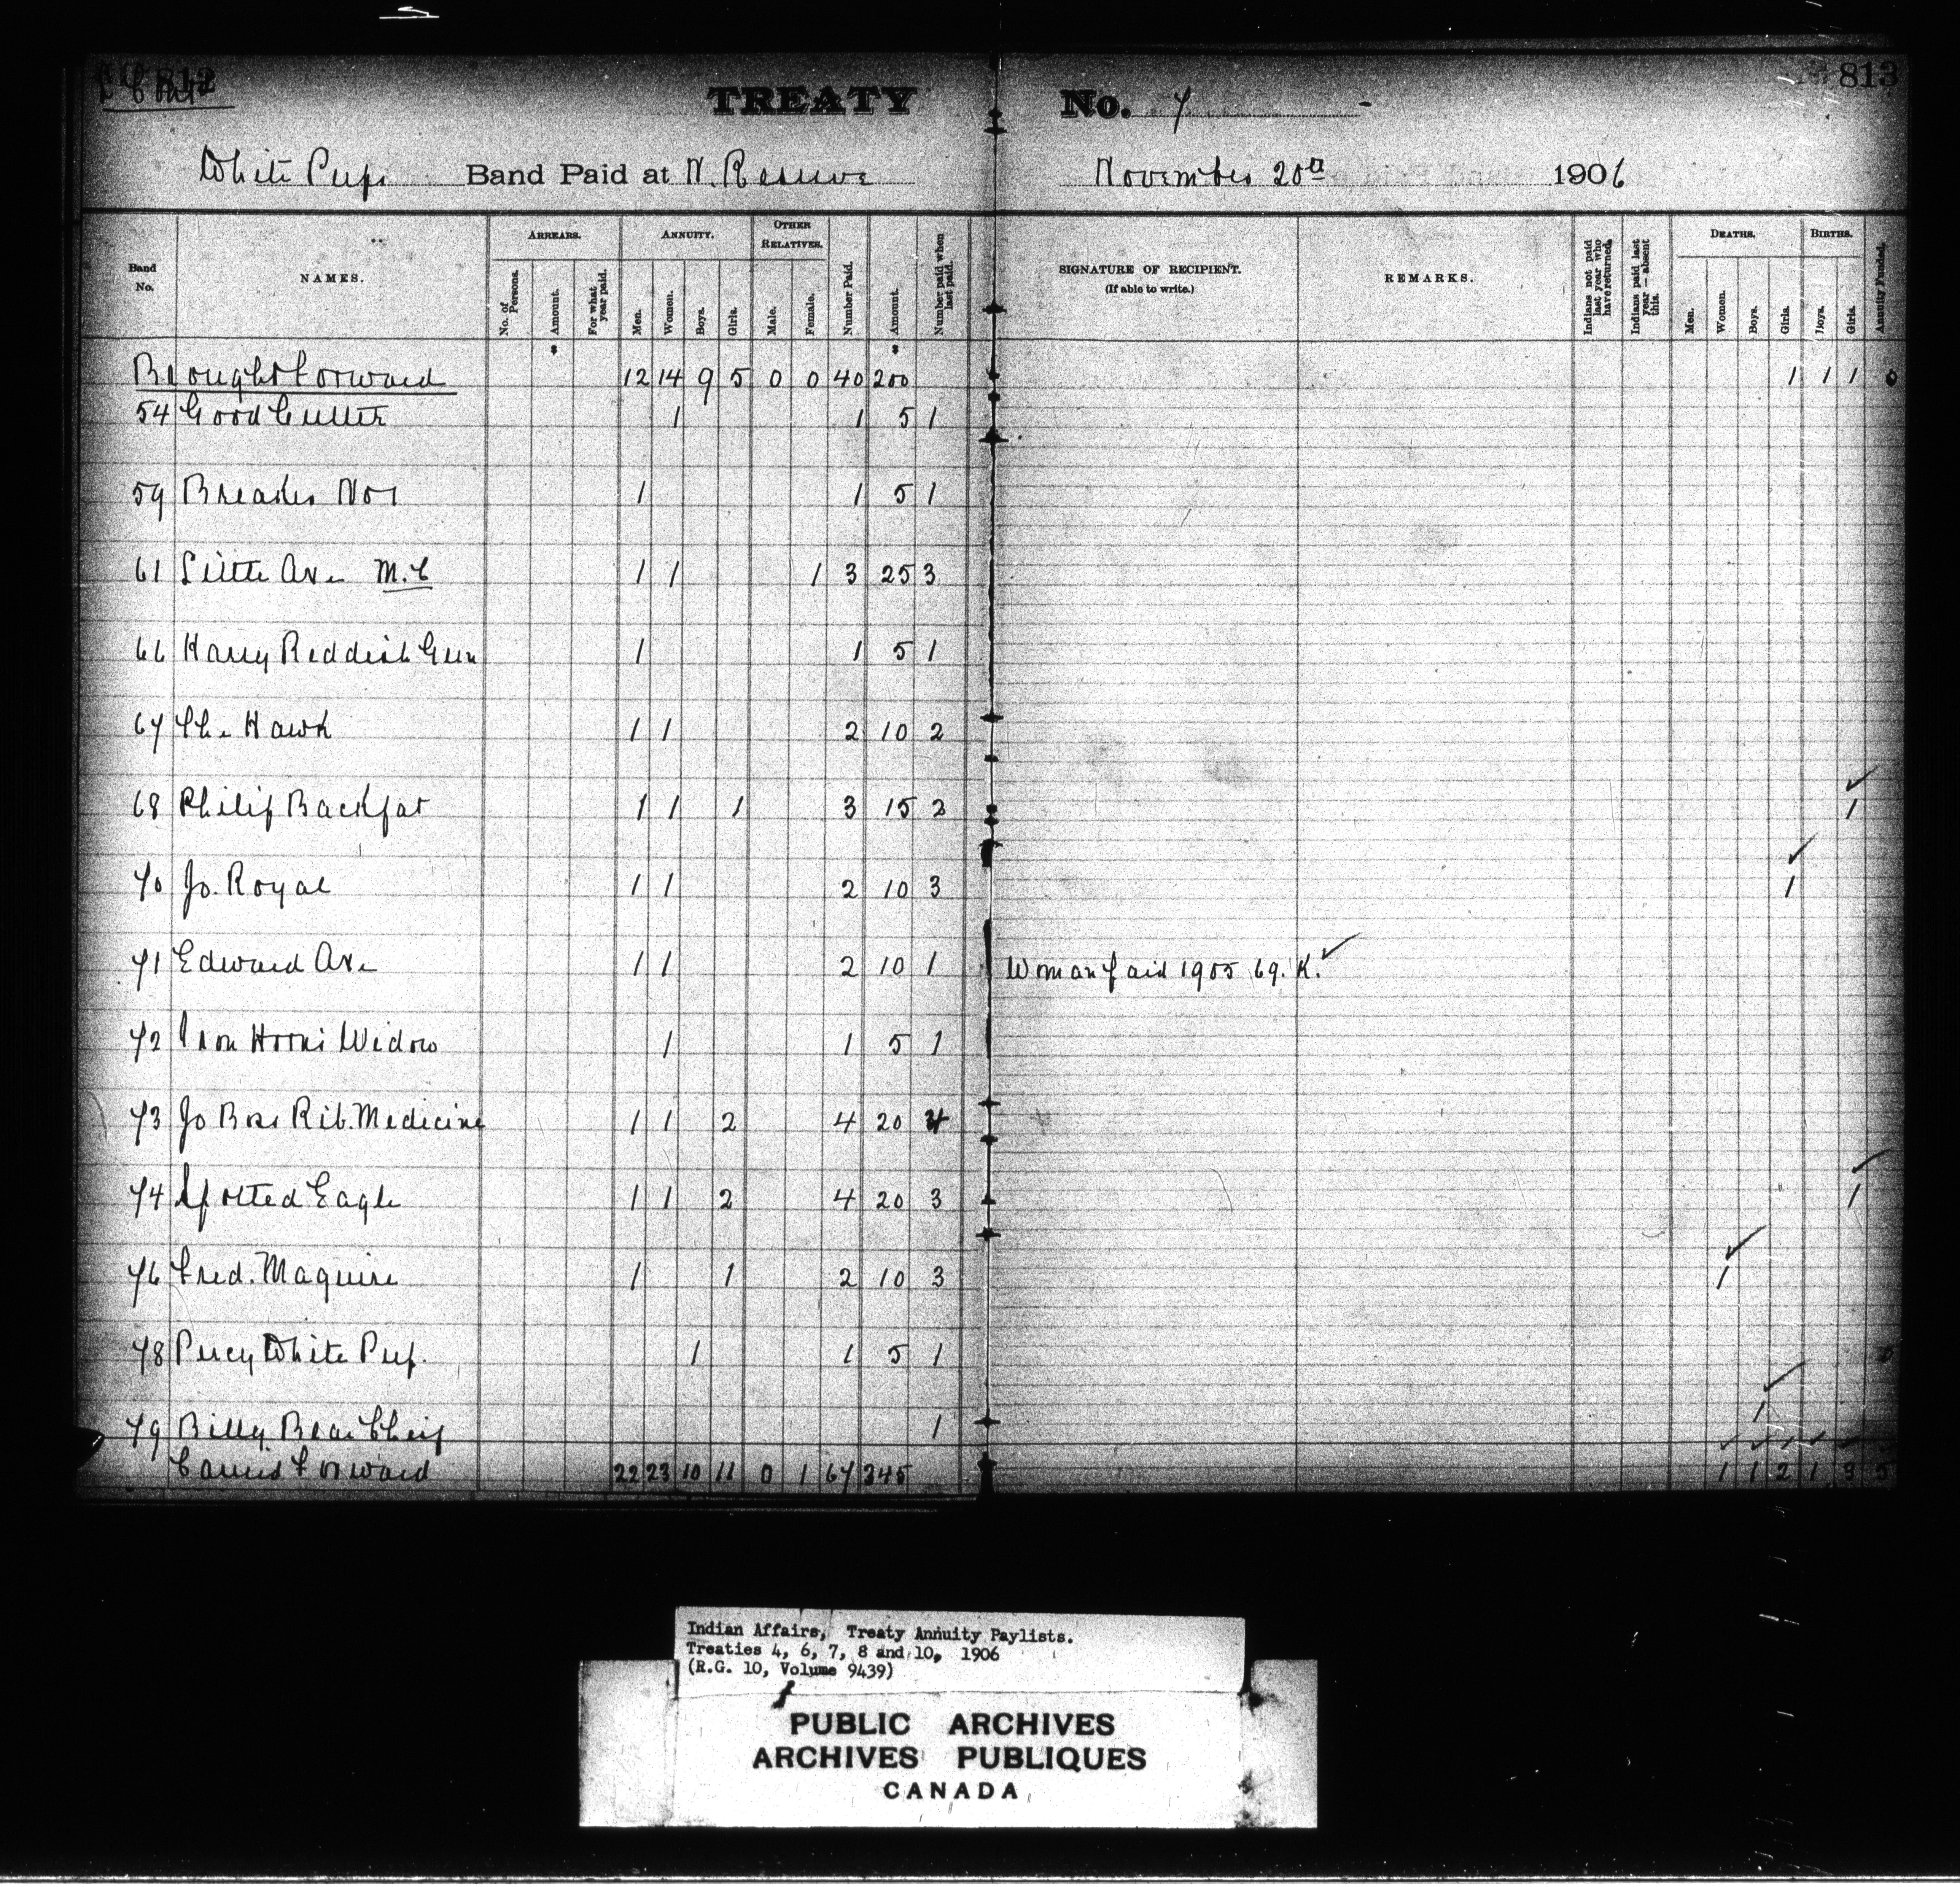 812
813
TREATY No. 7
White Pups Band Paid at N. Reserve November 20th 1906
Band No. NAMES. ARREARS. No. of Persons. Amount. For what year paid. ANNUITY. Men. Women. Boys. Girls. OTHER RELATIVES. Male. Female. Number Paid. Amount. Number paid when last paid. SIGNATURE OF RECIPIENT. (If able to write.) REMARKS. Indians not paid last year who have returned. Indians paid last year — absent this. DEATHS. Men. Women. Boys. Girls. BIRTHS. Boys. Girls. Annuity Funded.
$ $
Brought Forward 12 14 9 5 0 0 40 200 1 1 1 0
54 Good Cutter 1 1 5 1
59 Breaks No 1 1 1 5 1
61 Little Axe M.C 1 1 1 3 25 3
66 Harry Reddish Gun 1 1 5 1
67 The Hawk 1 1 2 10 2
68 Philip Backfat 1 1 1 3 15 2 ✓ 1
70 Jo. Royal 1 1 2 10 3 ✓ 1
71 Edward Axe 1 1 2 10 1 Woman paid 1905 69. K. ✓
72 Iron Horns Widow 1 1 5 1
73 Jo Boss Rib. Medicine 1 1 2 4 20 4
74 Spotted Eagle 1 1 2 4 20 3 ✓ 1
76 Fred. Maguire 1 1 2 10 3 ✓ 1
78 Percy White Pup. 1 1 5 1
79 Billy Bear Cheif 1 ✓ 1
Carried Forward 22 23 10 11 0 1 67 345 1 1 2 1 3
Indian Affairs, Treaty Annuity Paylists.
Treaties 4, 6, 7, 8 and 10, 1906
(R.G. 10, Volume 9439)
PUBLIC ARCHIVES
ARCHIVES PUBLIQUES
CANADA